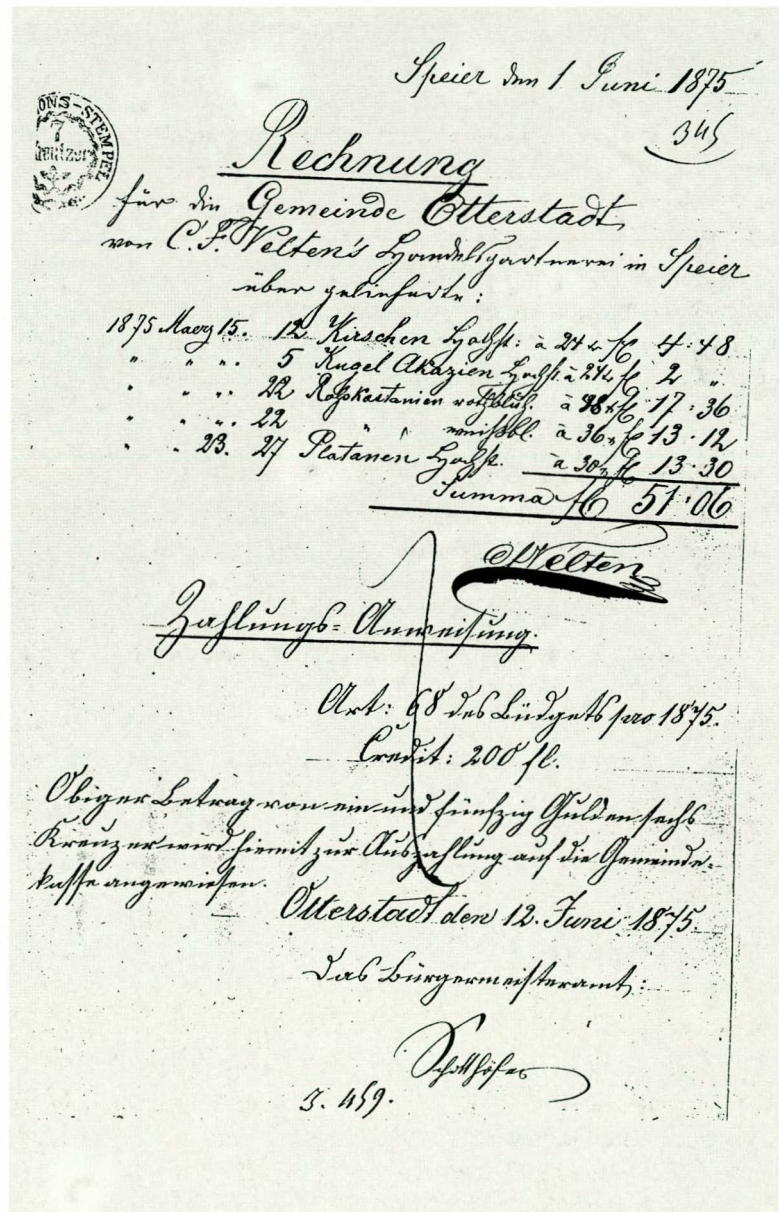 Speier den 1 Juni 1875
345
ONS-STEMPEL
7
Kreutzer
Rechnung
für die Gemeinde Otterstadt
von C. F. Velten's Handelsgärtnerei in Speier
über gelieferte:
1875 Maerz 15. 12 Kirschen Hochst: à 24 x fl 4 : 48
" " ". 5 Kugel Akazien Hochst. à 24 x fl 2 "
" " ". 22 Roßkastanien rothblüh. à 48 x fl 17 : 36
" " ". 22 " " weißbl. à 36 x fl 13 . 12
" " 23. 27 Platanen Hochst. à 30 x fl 13 . 30
Summa fl 51 . 06
Velten
Zahlungs=Anweisung.
Art: 68 des Büdgets pro 1875.
Credit: 200 fl.
Obiger Betrag von ein und fünfzig Gulden sechs
Kreuzer wird hiemit zur Auszahlung auf die Gemeinde-
kasse angewiesen.
Otterstadt den 12. Juni 1875.
Das Bürgermeisteramt:
Schotthöfer
J. 459.